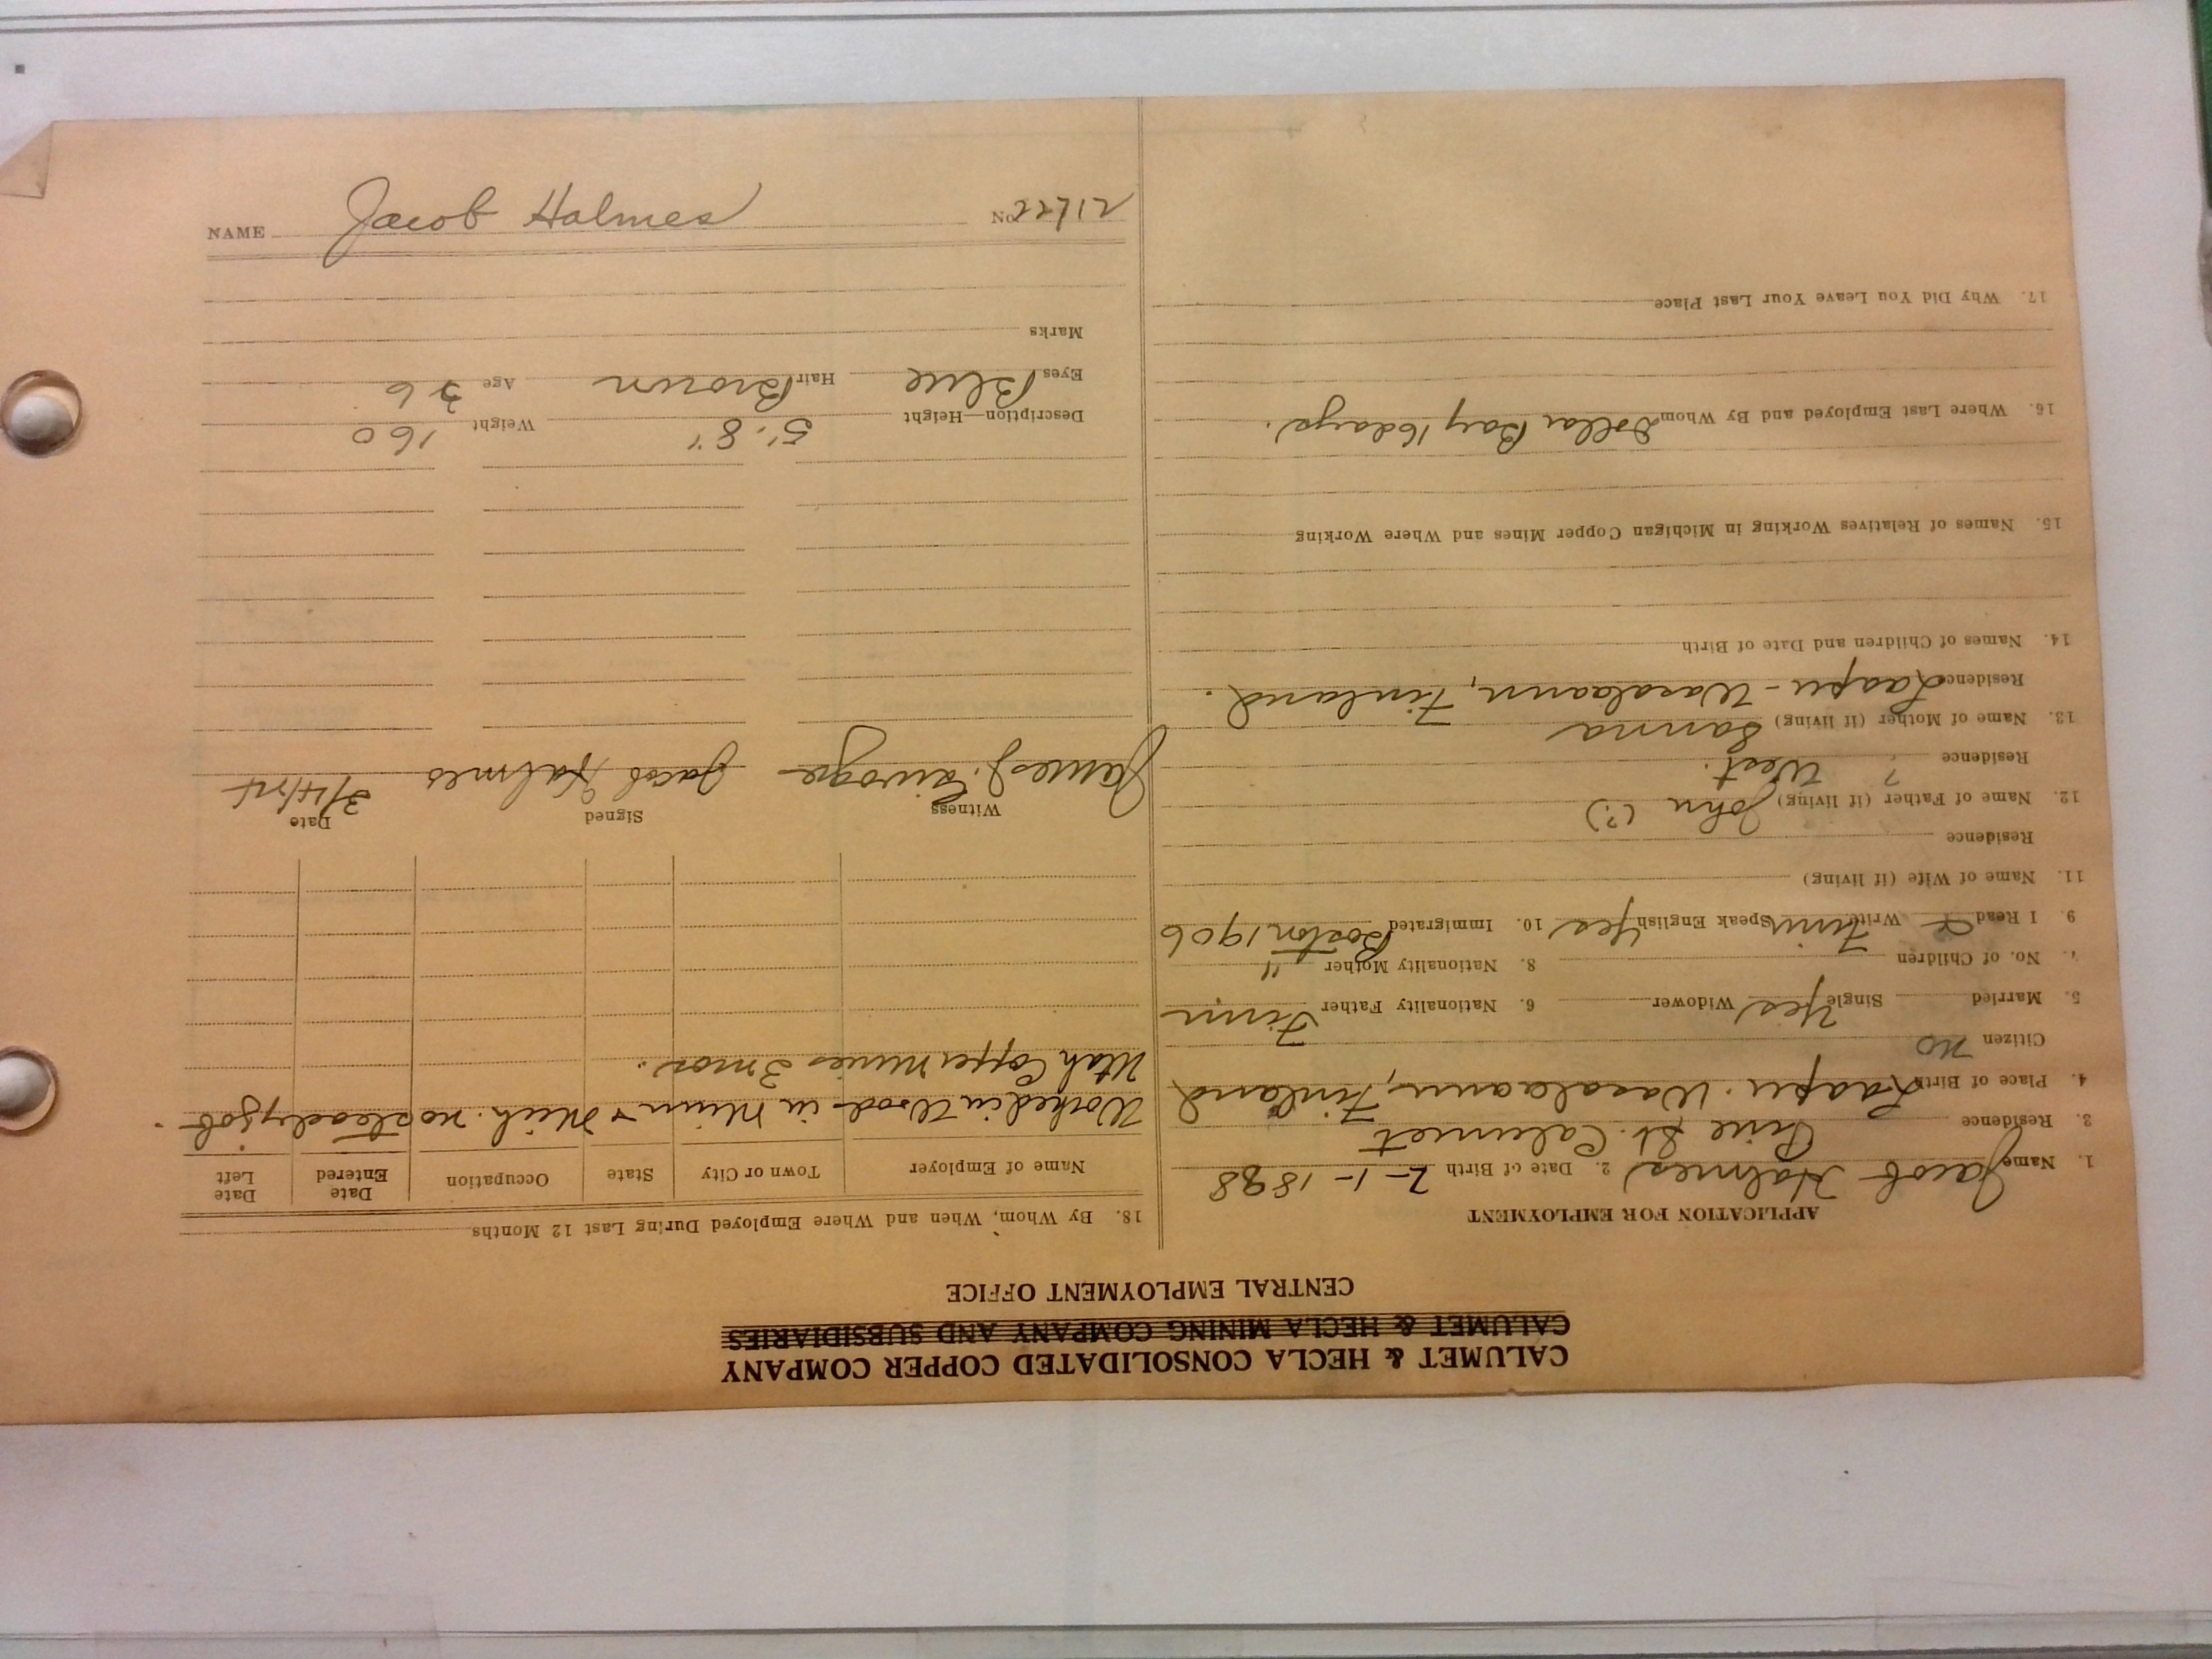 CALUMET & HECLA CONSOLIDATED COPPER COMPANY
CALUMET & HECLA MINING COMPANY AND SUBSIDIARIES
CENTRAL EMPLOYMENT OFFICE
APPLICATION FOR EMPLOYMENT
1. Name Jacob Halmes 2. Date of Birth 2-1-1888
3. Residence Pine St. Calumet
4. Place of Birth Laapu-Wasalaani, Finland
Citizen no
5. Married Single Yes Widower 6. Nationality Father Finn
7. No. of Children 8. Nationality Mother "
9. I Read & Write Finn Speak English Yes 10. Immigrated Boston 1906
11. Name of Wife (if living)
Residence
12. Name of Father (if living) John (?)
Residence ? West.
13. Name of Mother (if living) Sanna
Residence Laapu-Wasalaani, Finland.
14. Names of Children and Date of Birth
15. Names of Relatives Working in Michigan Copper Mines and Where Working
16. Where Last Employed and By Whom Dollar Bay 16 days.
17. Why Did You Leave Your Last Place
18. By Whom, When and Where Employed During Last 12 Months
Name of Employer Town or City State Occupation Date Entered Date Left
Worked in Woods in Minn & Mich. no steady job.
Utah Copper Mines 3 mos.
Witness Signed Date
James J. Jacob Halmes 3/4/24
Description—Height 5'.8" Weight 160
Eyes Blue Hair Brown Age 36
Marks
NAME Jacob Halmes No.